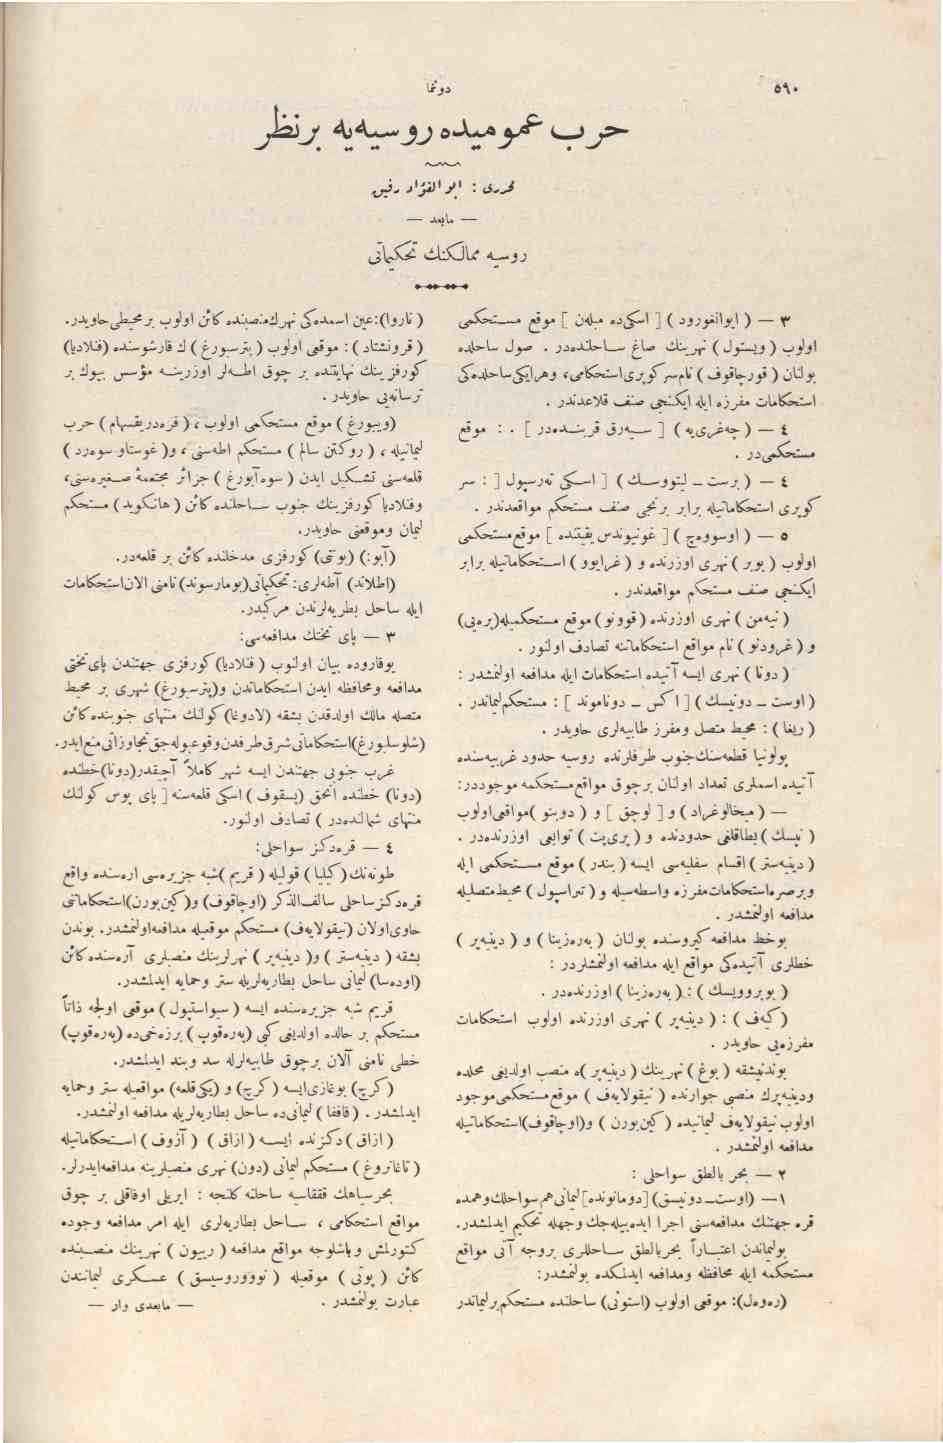 ٥٩٠
دونما
حرب عموميده روسيه‌يه بر نظر
محررى : ابو الفؤاد رفيق
— مابعد —
روسيه ممالكنك تحكيماتى
٣ — ( ايوانغورود ) [ اسكى‌ده مبله‌ن ] موقع مستحكمى
اولوب ( ويستول ) نهرينك صاغ ساحلنده‌در . صول ساحلده
بولنان ( قورچاقوف ) نام سر كوپرى استحكامى، وهر ايكى ساحلده‌كى
استحكامات مفرزه ايله ايكنجى صنف قلاعدندر .
٤ — ( چه‌غرى‌يه ) [ سه‌رق قربنده‌در ] . : موقع
مستحكمى‌در .
٤ — ( برست ـ ليتووسك ) [ اسكى ته‌رسپول ] : سر
كوپرى استحكاماتيله برابر برنجى صنف مستحكم مواقعدندر .
٥ — ( اوسووه‌ج ) [ غونيوندس يقيننده ] موقع مستحكمى
اولوب ( بوبر ) نهرى اوزرنده و ( غرايوو ) استحكاماتيله برابر
ايكنجى صنف مستحكم مواقعدندر .
( نيه‌من ) نهرى اوزرنده ( قوونو ) موقع مستحكميله (بره‌يى)
و ( غرودنو ) نام مواقع استحكاماتنه تصادف اولنور .
( دونا ) نهرى ايسه آتيده استحكامات ايله مدافعه اولنمشدر :
( اوست ـ دونيسك ) [ اكس ـ دوناموند ] : مستحكم ليماندر .
( ريغا ) : محيط متصل ومفرز طابيه‌لرى حاويدر .
پولونيا قطعه‌سنك جنوب طرفلرنده روسيه حدود غربيه‌سنده
آتيده اسملرى تعداد اولنان برچوق مواقع مستحكمه موجوددر:
— ( ميخالوغراد ) و [ لوچق ] و ( دوبنو ) مواقعى اولوب
( پنسك ) بطاقلغى حدودنده و ( پرى‌پت ) توابعى اوزرنده‌در .
( دينيه‌ستر ) اقسام سفليه‌سى ايسه ( بندر ) موقع مستحكمى ايله
وبرصره استحكامات مفرزه واسطه‌سيله و ( تيراسپول ) محيط متصليله
مدافعه اولنمشدر .
بو خط مدافعه كيروسنده بولنان ( به‌ره‌زينا ) و ( دينيه‌پر )
خطلرى آتيده‌كى مواقع ايله مدافعه اولنمشلردر :
( بوبروويسك ) : ( به‌ره‌زينا ) اوزرنده‌در .
( كيه‌ف ) : ( دينيه‌پر ) نهرى اوزرنده اولوب استحكامات
مفرزه‌يى حاويدر .
بوندنبشقه ( بوغ ) نهرينك ( دينيه‌پر ) ه منصب اولديغى محلده
ودينيه‌پرك منصبى جوارنده ( نيقولايه‌ف ) موقع مستحكمى موجود
اولوب نيقولايه‌ف ليمانيده ( كين بورن ) و(اوچاقوف)استحكاماتيله
مدافعه اولنمشدر .
٢ — بحر بالطق سواحلى :
١— (اوست ـ دونيسق) [دومانونده] ليمانى هم سواحلك وهمده
قره جهتنك مدافعه‌سنى اجرا ايده‌بيله‌جك وجهله تحكيم ايدلمشدر.
بوليماندن اعتباراً بحربالطق ساحللرى بروجه آتى مواقع
مستحكمه ايله محافظه ومدافعه ايدلمكده بولنمشدر:
(ره‌وه‌ل): موقعى اولوب (استونى) ساحلنده مستحكم برليماندر
( ناروا):عين اسمده‌كى نهرك منصبنده كائن اولوب برمحيطى حاويدر.
( قرونشتاد ) : موقعى اولوب ( پترسبورغ ) ك قارشوسنده (فنلاديا)
كورفزينك نهايتنده بر چوق اطه‌لر اوزرينه مؤسس بيوك بر
ترسانه‌يى حاويدر .
(ويبورغ) موقع مستحكمى اولوب، ( فره‌دريقسهام ) حرب
ليمانيله ، ( روكتن سالم ) مستحكم اطه‌سنى ، و( غوستاو سوه‌رد )
قلعه‌سنى تشكيل ايدن ( سوه‌آبورغ ) جزائر مجتمعهٔ صغيره‌سنى،
وفنلاديا كورفزينك جنوب ساحلنده كائن ( هانكويد ) مستحكم
ليمان وموقعنى حاويدر.
(آبو:) (بوتنى) كورفزى مدخلنده كائن بر قلعه‌در.
(اطلاند) آطه‌لرى: تحكيماتى(بومارسوند) نامنى الان استحكامات
ايله ساحل بطريه‌لرندن مركبدر.
٣ — پاى تختك مدافعه‌سى:
يوقاروده بيان اولنوب ( فنلاديا) كورفزى جهتندن پاى تختى
مدافعه ومحافظه ايدن استحكاماتدن و(پترسبورغ) شهرى بر محيط
متصله مالك اولدقدن بشقه (لادوغا) كولنك منتهاى جنوبنده كائن
(شلوسلبورغ)استحكاماتى شرق طرفدن وقوعبوله‌جق تجاوزاتى منع ايدر.
غرب جنوبى جهتندن ايسه شهر كاملاً آچيقدر(دونا)خطنده
(دونا) خطنده انجق (پسقوف) اسكى قلعه‌سنه [ پاى پوس كولنك
منتهاى شمالنده‌در ) تصادف اولنور.
٤ — قره‌دكز سواحلى:
طونه‌نك ( كيليا ) قوليله ( قريم ) شبه جزيره‌سى اره‌سنده واقع
قره‌دكز ساحلى سالف‌الذكر (اوچاقوف) و( كين بورن)استحكاماتنى
حاوى‌اولان (نيقولايه‌ف) مستحكم موقعيله مدافعه‌اولنمشدر. بوندن
بشقه ( دينيه‌ستر ) و( دينيه‌پر ) نهرلرينك منصبلرى آره‌سنده كائن
(اوده‌سا) ليمانى ساحل بطاريه‌لريله ستر وحمايه ايدلمشدر.
قريم شبه جزيره‌سنده ايسه ( سيواستپول ) موقعى اولجه ذاتاً
مستحكم بر حالده اولديغى كبى (په‌ره‌قوپ) برزه‌خى‌ده (په‌ره‌قوپ)
خطى نامنى آلان برچوق طابيه‌لرله سد وبند ايدلمشدر.
(كرچ) بوغازى‌ايسه ( كرچ) و (يكى‌قلعه) مواقعيله ستر وحمايه
ايدلمشدر. (قافا ) ليمانى‌ده ساحل بطاريه‌لريله مدافعه اولنمشدر.
( ازاق ) دكزنده ايسه ( ازاق ) ( آزوف ) استحكاماتيله
( تاغانروغ ) مستحكم ليمانى (دون) نهرى منصبلرينه مدافعه‌ايدرلر.
بحرسياهك قفقاسيه ساحلنه كلنجه : ايريلى اوفاقلى بر چوق
مواقع استحكامى ، ساحل بطاريه‌لرى ايله امر مدافعه وجوده
كتورلمش وباشلوجه مواقع مدافعه ( ريبون ) نهرينك منصبنده
كائن ( پوتى ) موقعيله ( نووروسيسق ) عسكرى ليمانندن
عبارت بولنمشدر .
— مابعدى وار —